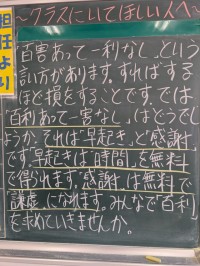 ～クラスにいてほしい人へ～
担任より
「百害あって一利なし」という
言い方があります。すればする
ほど損をすることです。では
「百利あって一害なし」はどうでし
ょうか。それは「早起き」と「感謝」
です。「早起き」は「時間」を無料
で得られます。「感謝」は無料で
謙虚になれます。みんなで「百利」
を求めていきませんか。